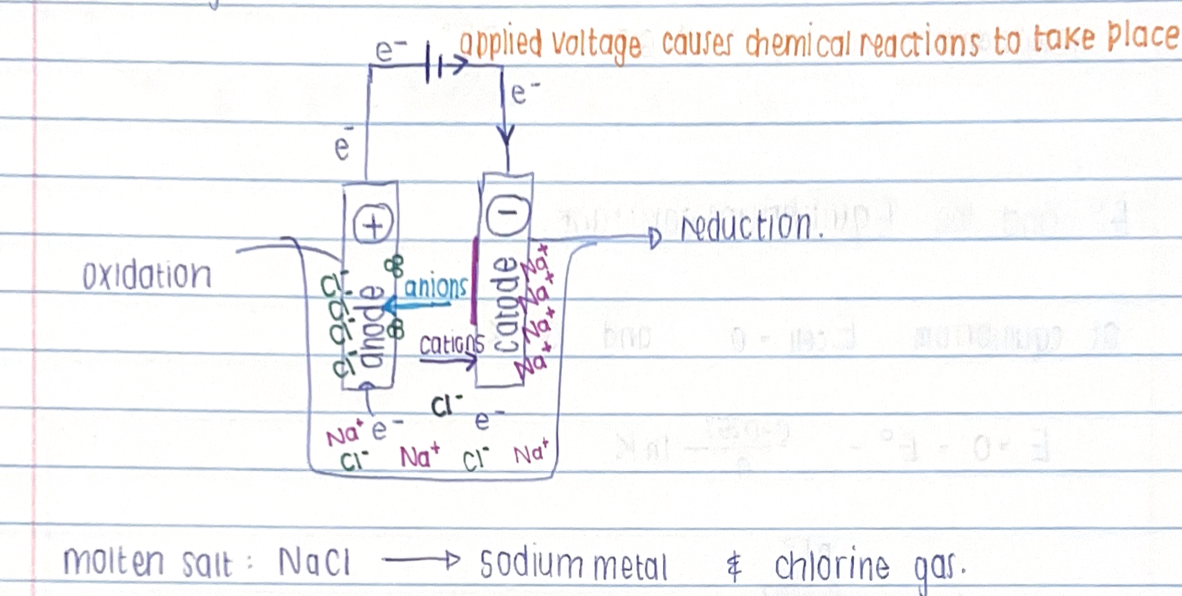 e⁻ applied voltage causes chemical reactions to take place
e⁻
e⁻
+ −
reduction.
oxidation
Cl⁻
Cl⁻
Cl⁻
Cl⁻
anode
anions
cations
catode
Na⁺
Na⁺
Na⁺
Na⁺
Cl⁻ e⁻
Na⁺ e⁻
Cl⁻ Na⁺ Cl⁻ Na⁺
molten salt : NaCl → sodium metal & chlorine gas.